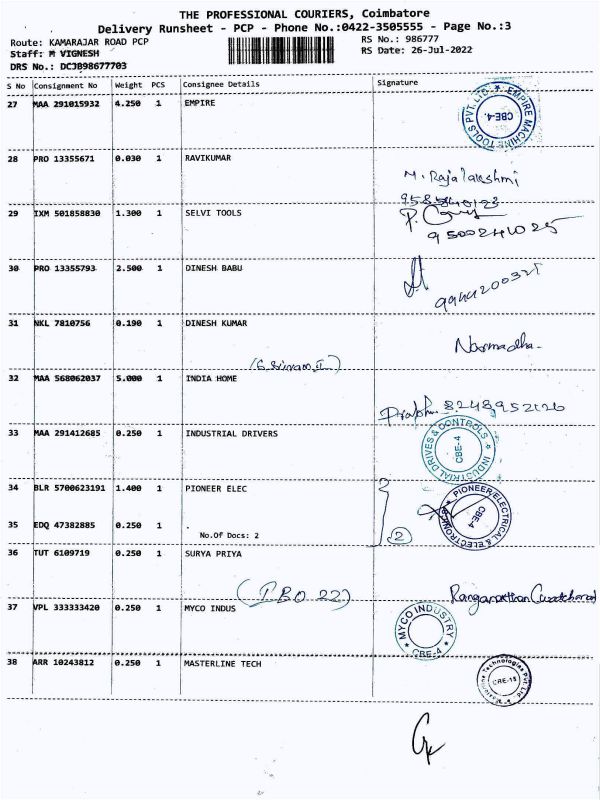 THE PROFESSIONAL COURIERS, Coimbatore
Delivery Runsheet - PCP - Phone No.:0422-3505555 - Page No.:3
Route: KAMARAJAR ROAD PCP
RS No.: 986777
Staff: M VIGNESH
RS Date: 26-Jul-2022
DRS No.: DCJB98677703
S No Consignment No Weight PCS Consignee Details Signature
27 MAA 291015932 4.250 1 EMPIRE
EMPIRE MACHINE TOOLS PVT. LTD. CBE-4.
28 PRO 13355671 0.030 1 RAVIKUMAR
M. Rajalakshmi
29 IXM 501858830 1.300 1 SELVI TOOLS
9500241025
30 PRO 13355793 2.500 1 DINESH BABU
31 NKL 7810756 0.190 1 DINESH KUMAR
Narmadha
32 MAA 568062037 5.000 1 INDIA HOME
8248952126
33 MAA 291412685 0.250 1 INDUSTRIAL DRIVERS
INDUSTRIAL DRIVES & CONTROLS CBE-4
34 BLR 5700623191 1.400 1 PIONEER ELEC
PIONEER ELECTRICAL & ELECTRONICS CBE-4
35 EDQ 47382885 0.250 1 .
No.Of Docs: 2
2
36 TUT 6109719 0.250 1 SURYA PRIYA
37 VPL 333333420 0.250 1 MYCO INDUS
MYCO INDUSTRY CBE-4
38 ARR 10243812 0.250 1 MASTERLINE TECH
Masterline Technologies Pvt. Ltd. CBE-18